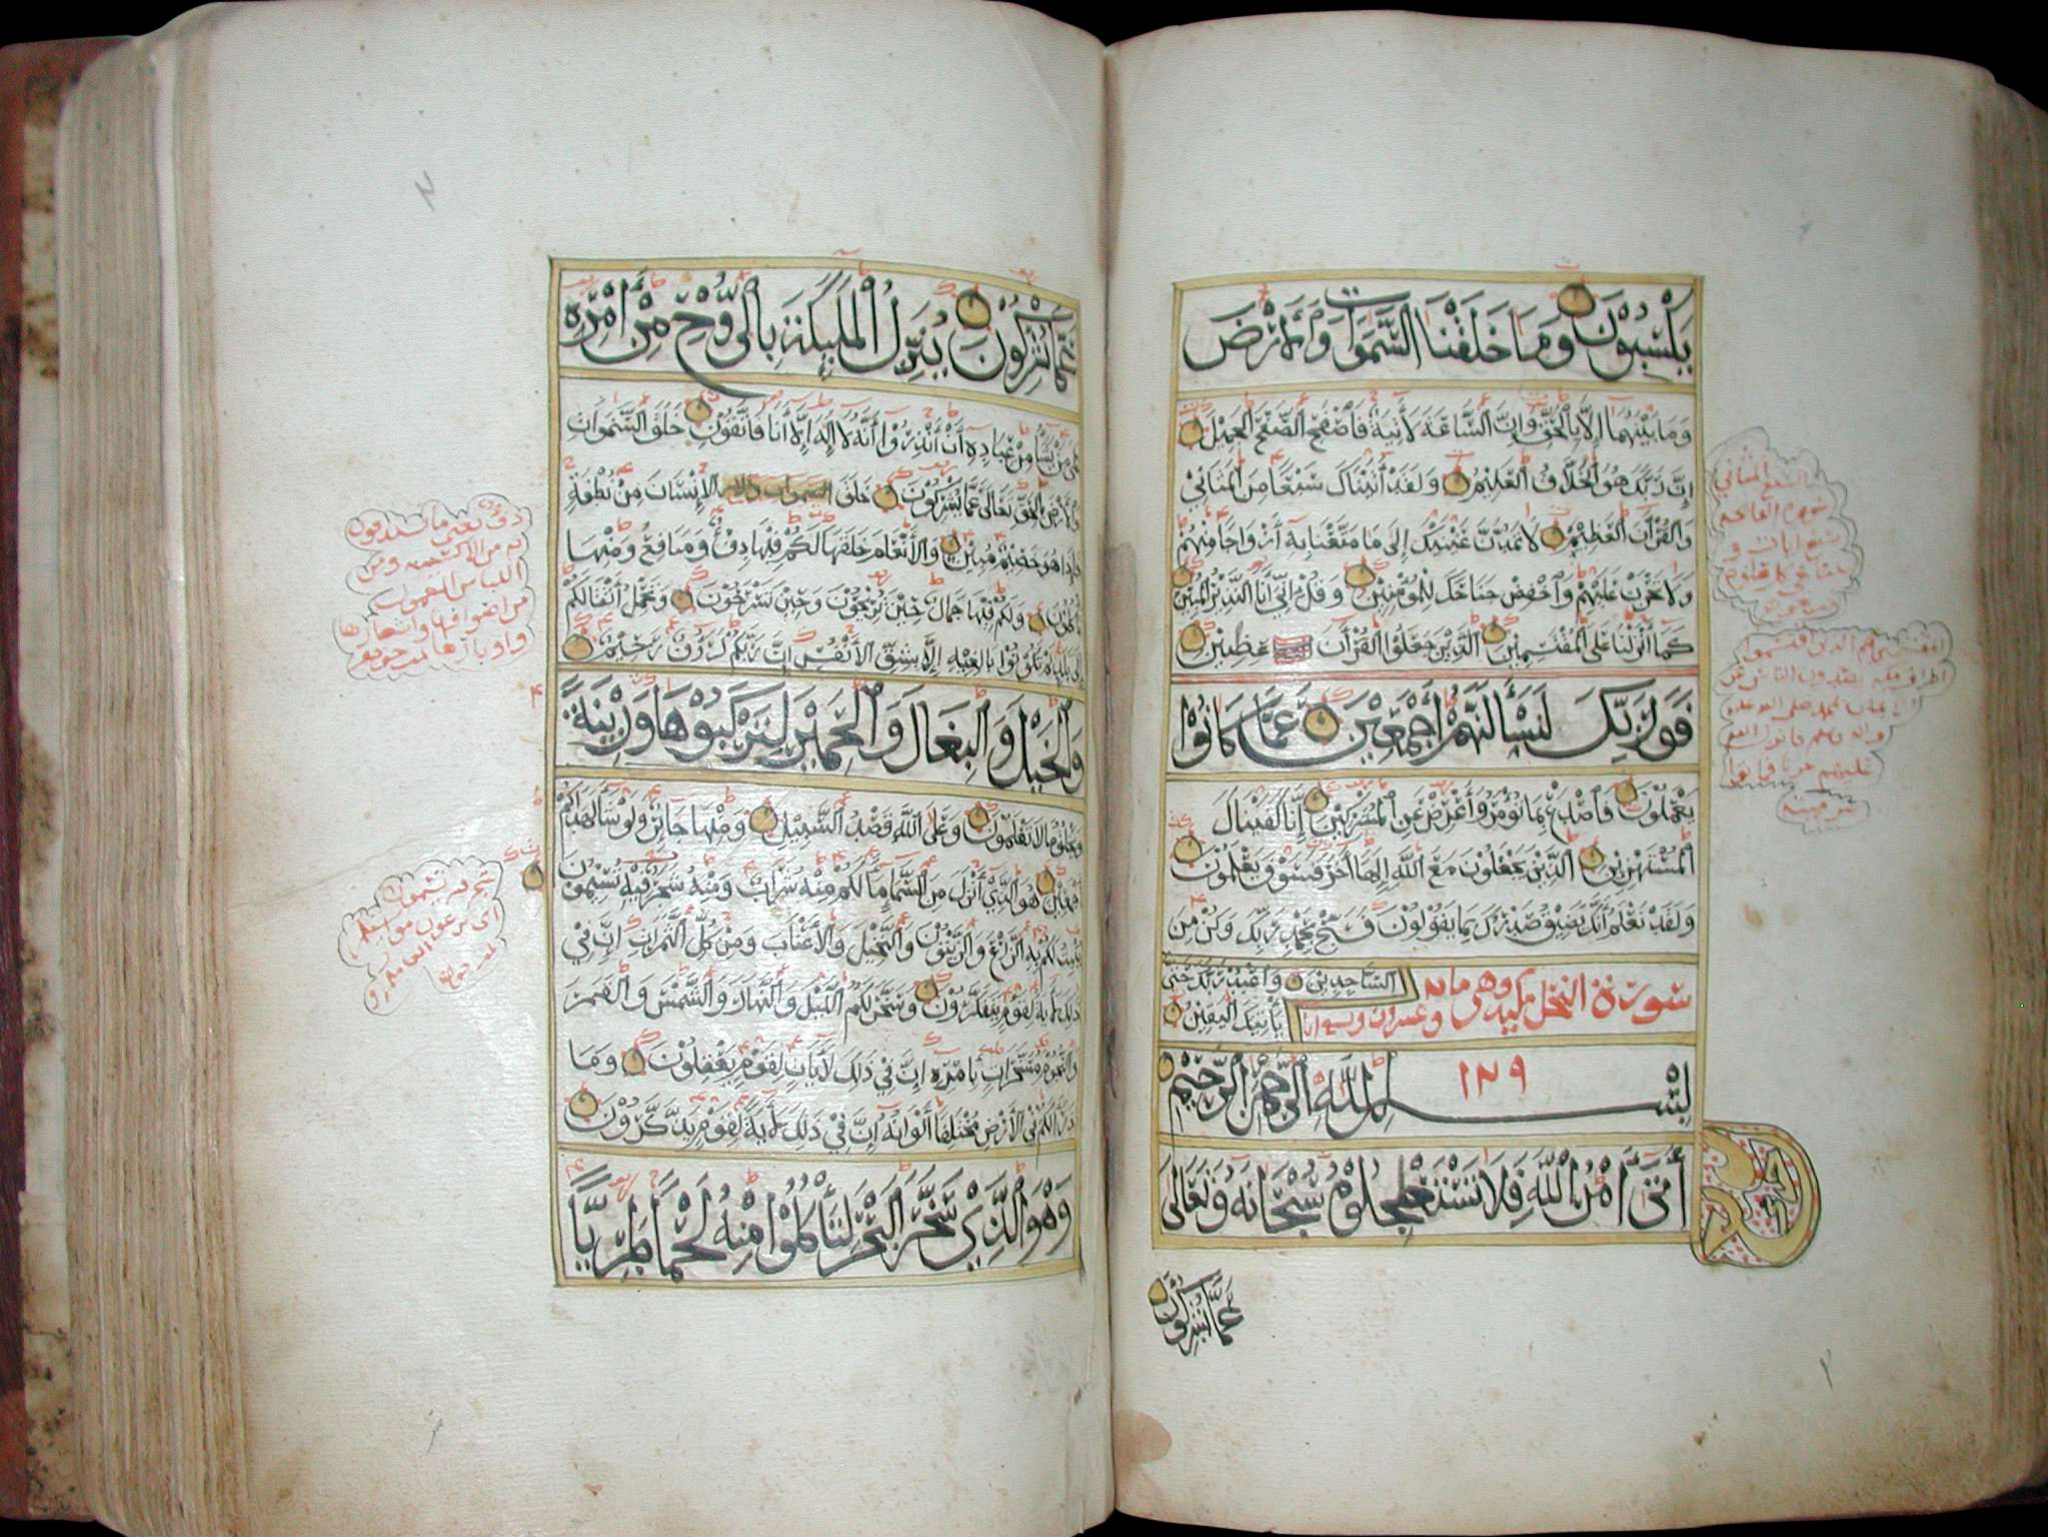 يكسبون وما خلقنا السموات والارض
وما بينهما إلا بالحق وإن الساعة لأتية فاصفح الصفح الجميل
إن ربك هو الخلاق العليم ولقد أتيناك سبعا من المثاني
والقرآن العظيم لا تمدن عينيك إلى ما متعنا به أزواجا منهم
ولا تحزن عليهم واخفض جناحك للمؤمنين وقل إني أنا النذير المبين
كما أنزلنا على المقتسمين الذين جعلوا القرآن عظين
فوربك لنسألنهم أجمعين عما كانوا
يعملون فاصدع بما تؤمر وأعرض عن المشركين إنا كفيناك
المستهزئين الذين يجعلون مع الله إلها أخر فسوف يعلمون
ولقد نعلم أنك يضيق صدرك بما يقولون فسبح بحمد ربك وكن من
الساجدين واعبد ربك حتى
يأتيك اليقين
سورة النحل مكيه وهي مايه
وعشرون
بسم الله الرحمن الرحيم
١٢٩
أتى أمر الله فلا تستعجلوه سبحانه وتعالى
عما يشركون
السبع المثاني
سورة الفاتحه
سبع ايات و
عما يشركون ينزل الملئكة بالروح من أمره
على من يشاء من عباده أن أنذروا أنه لا إله إلا أنا فاتقون خلق السموات
والأرض بالحق تعالى عما يشركون خلق السموات والأ الإنسان من نطفة
فإذا هو خصيم مبين والأنعام خلقها لكم فيها دفء ومنافع ومنها
تأكلون ولكم فيها جمال حين تريحون وحين تسرحون وتحمل أثقالكم
إلى بلد لم تكونوا بالغيه إلا بشق الأنفس إن ربكم لرؤف رحيم
والخيل والبغال والحمير لتركبوها وزينة
ويخلق ما لا تعلمون وعلى الله قصد السبيل ومنها جائر ولو شاء لهداكم
أجمعين هو الذي أنزل من السماء ماء لكم منه شراب ومنه شجر فيه تسيمون
ينبت لكم به الزرع والزيتون والنخيل والأعناب ومن كل الثمرات إن في
ذلك لأية لقوم يتفكرون وسخر لكم الليل والنهار والشمس والقمر
والنجوم مسخرات بأمره إن في ذلك لأيات لقوم يعقلون وما
ذرأ لكم في الأرض مختلفا ألوانه إن في ذلك لأية لقوم يذكرون
وهو الذي سخر البحر لتأكلوا منه لحما طريا